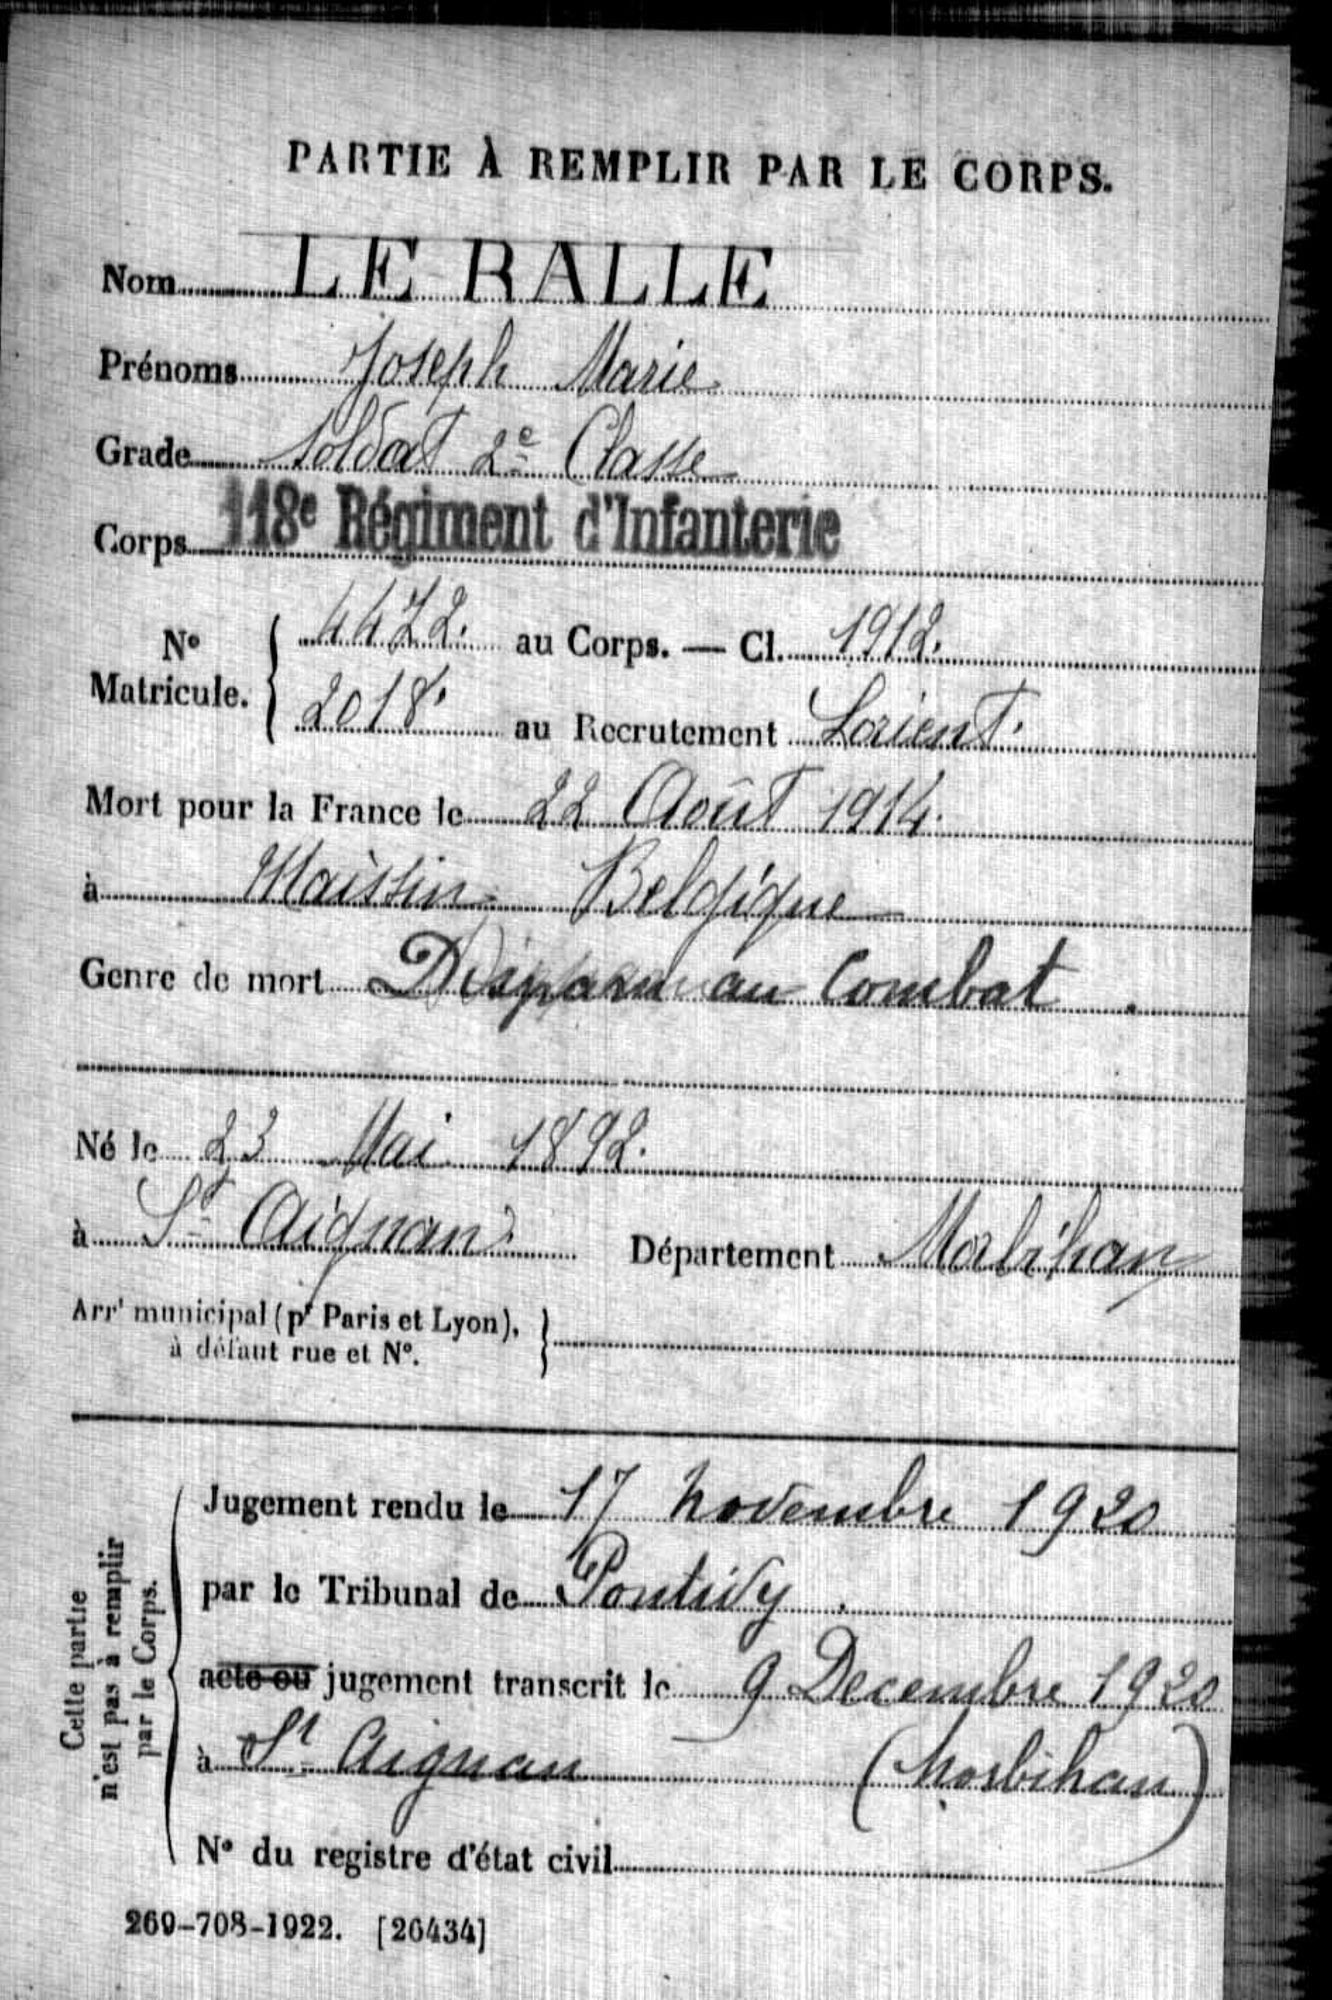 PARTIE À REMPLIR PAR LE CORPS.
Nom LE RALLE
Prénoms Joseph Marie
Grade Soldat 2e Classe
Corps 118e Régiment d'Infanterie
No Matricule. { 4472. au Corps. — Cl. 1912.
2018. au Recrutement Lorient.
Mort pour la France le 22 Août 1914.
à Maissin Belgique
Genre de mort Disparu au Combat.
Né le 23 Mai 1892.
à St Aignan Département Morbihan
Arrt municipal (pr Paris et Lyon), }
à défaut rue et No.
Cette partie
n'est pas à remplir
par le Corps.
Jugement rendu le 17 Novembre 1920
par le Tribunal de Pontivy.
acte ou jugement transcrit le 9 Decembre 1920
à St Aignan (Morbihan)
No du registre d'état civil
269-708-1922. [26434]